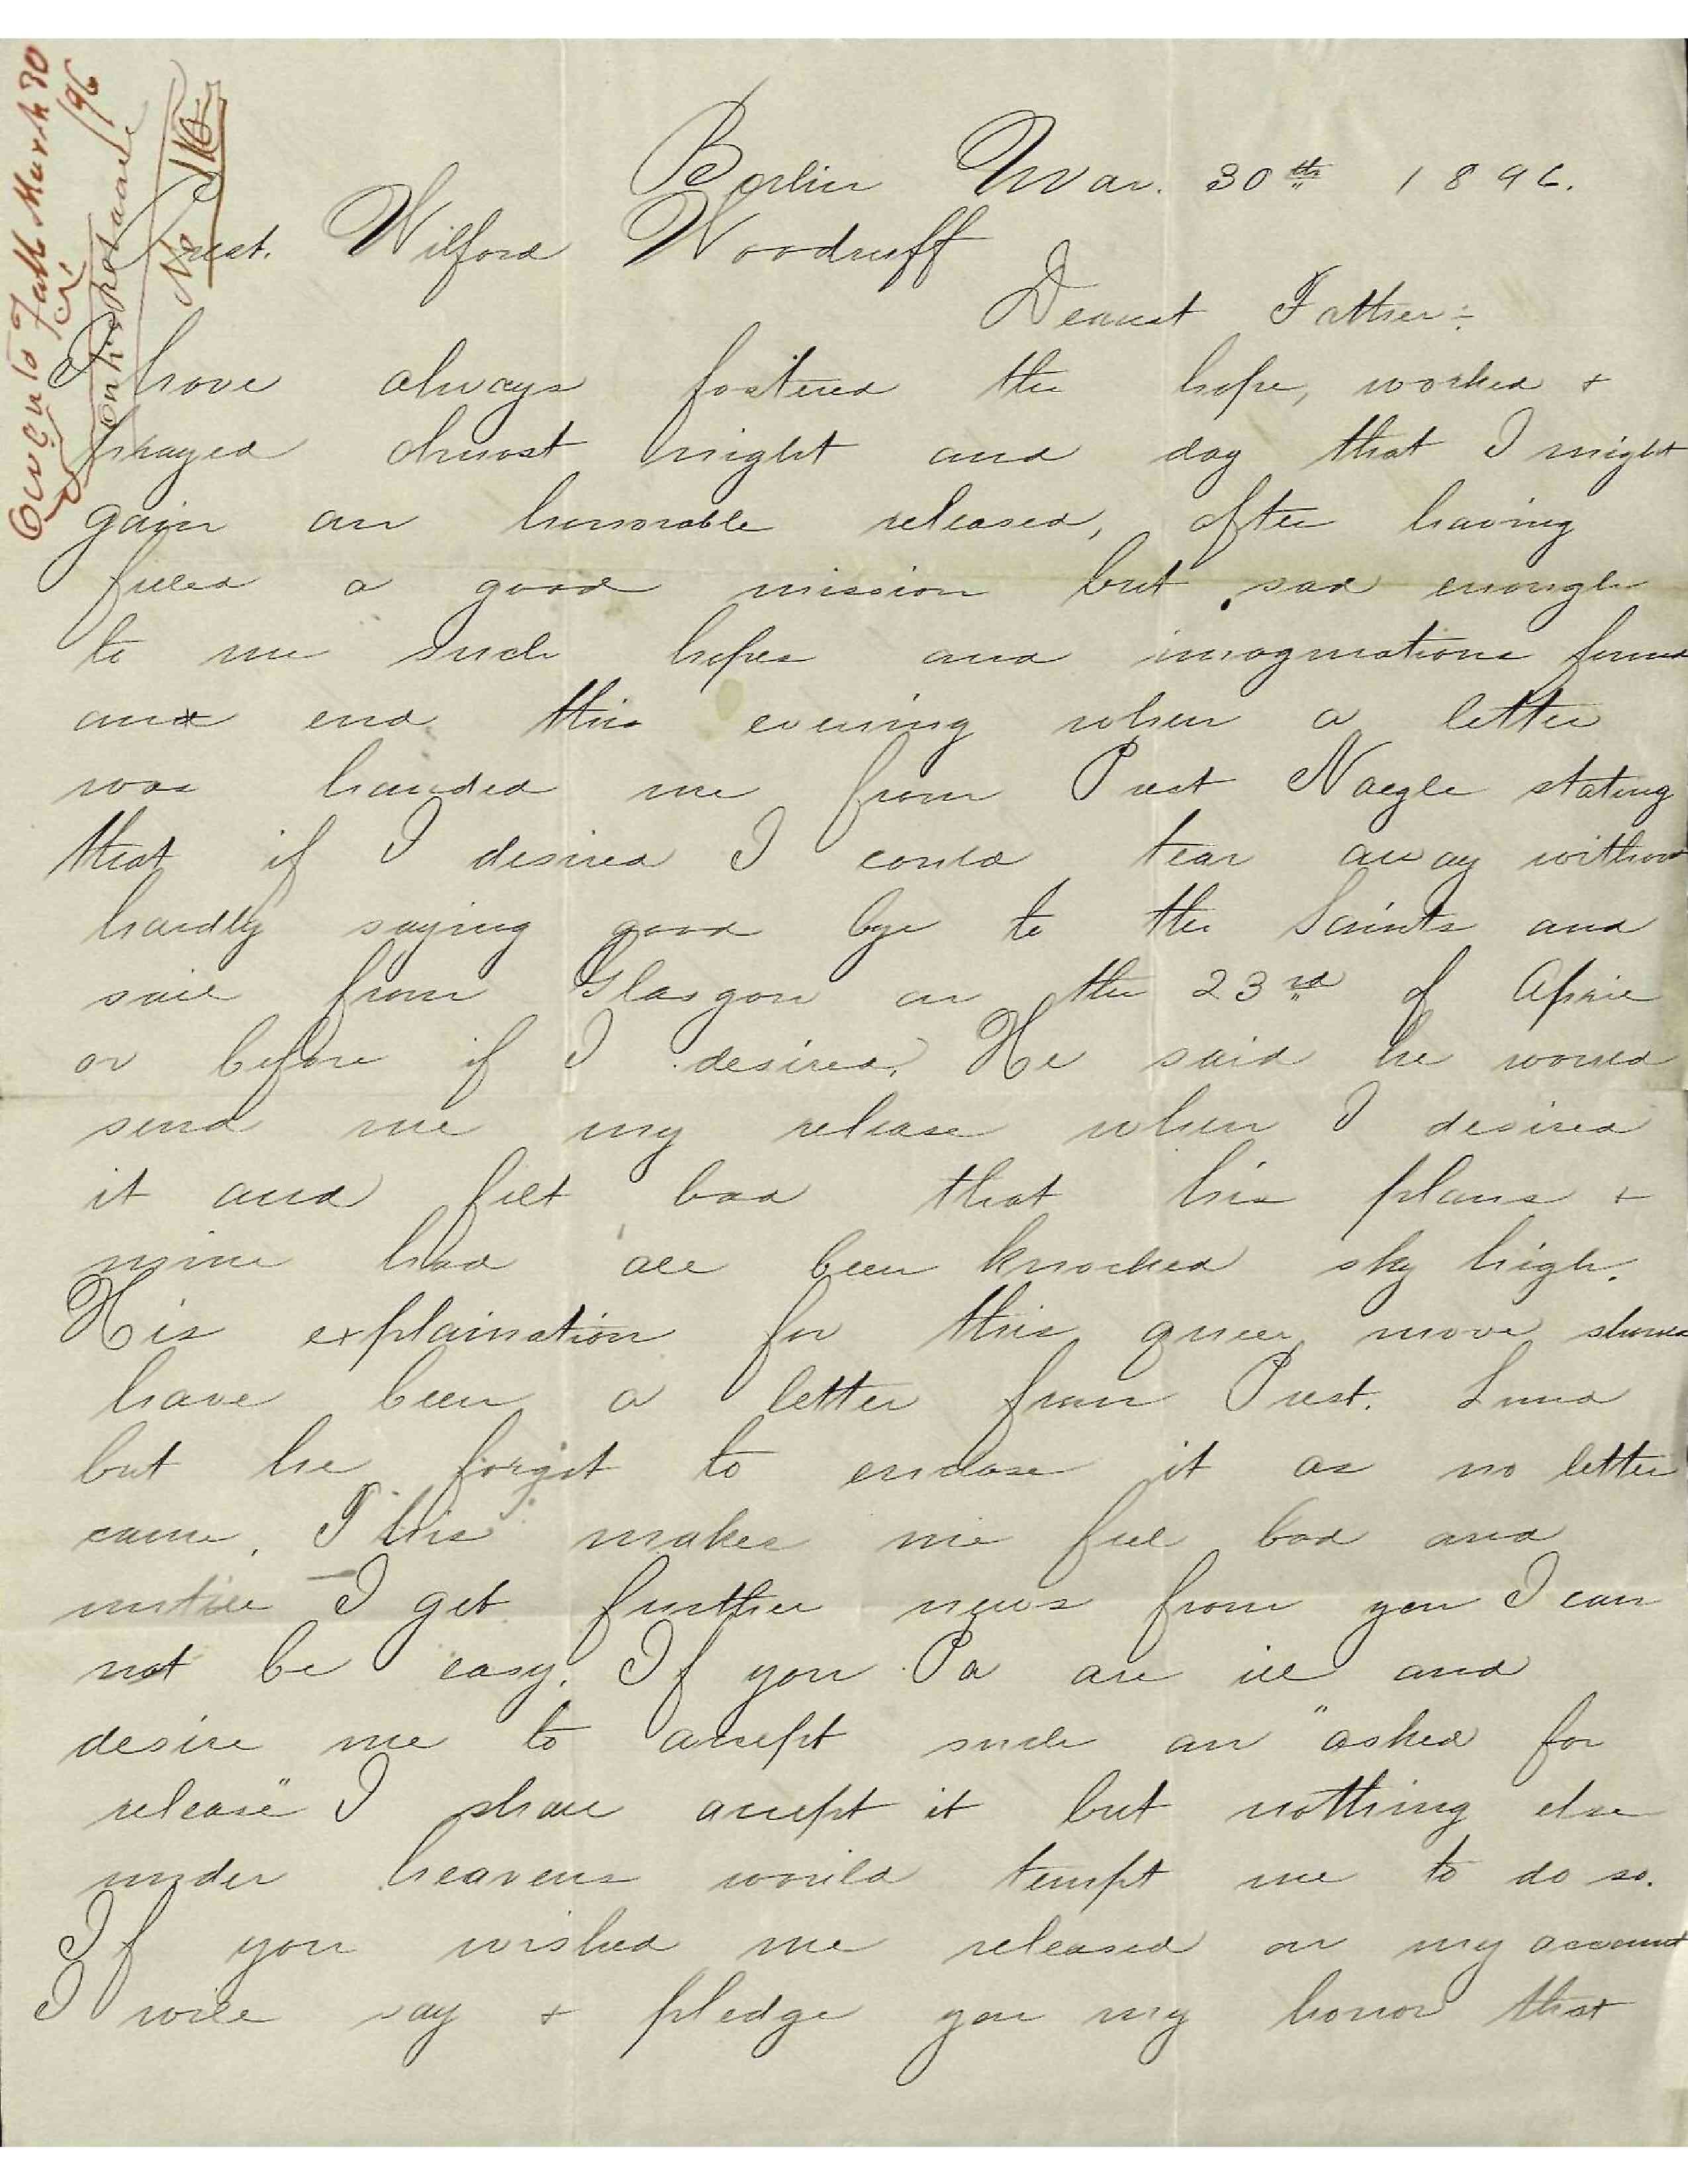 Owen to Fath March 30
/96
on his release
No 16
Berlin Mar. 30th 1896.
Prest. Wilford Woodruff
Dearest Father:
I have always fostered the hope, worked +
prayed almost night and day that I might
gain an honorable released, after having
filled a good mission but sad enough
to me such hopes and imaginations found
and end this evening when a letter
was handed me from Prest Naegle stating
that if I desired I could tear away without
hardly saying good bye to the Saints and
sail from Glasgow on the 23rd of April
or before if I desired. He said he would
send me my release when I desired
it and felt bad that his plans +
mine had all been knocked sky high.
His explaination for this queer move should
have been a letter from Prest. Lund
but he forgot to enclose it as no letter
came. This makes me feel bad and
untill I get further news from you I can
not be easy. If you Pa are ill and
desire me to accept such an "asked for
release" I shall accept it but nothing else
under heavens would tempt me to do so.
If you wished me released on my account
I will say + pledge you my honor that